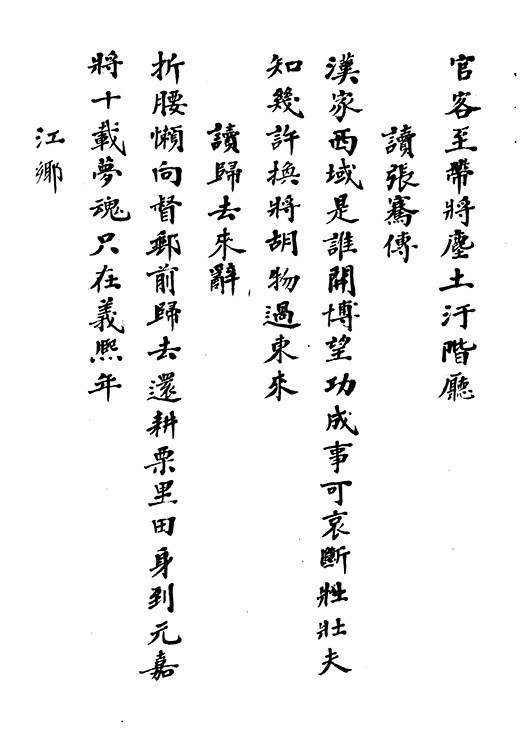 官客至帶將塵土汙階廳
讀張騫傳
漢家西域是誰開博望功成事可哀斷壯夫
知幾許換將胡物過東來
讀歸去來辭
折腰懶向督郵前歸去還耕栗里田身到元嘉
將十載夢魂只在義熙年
江鄉